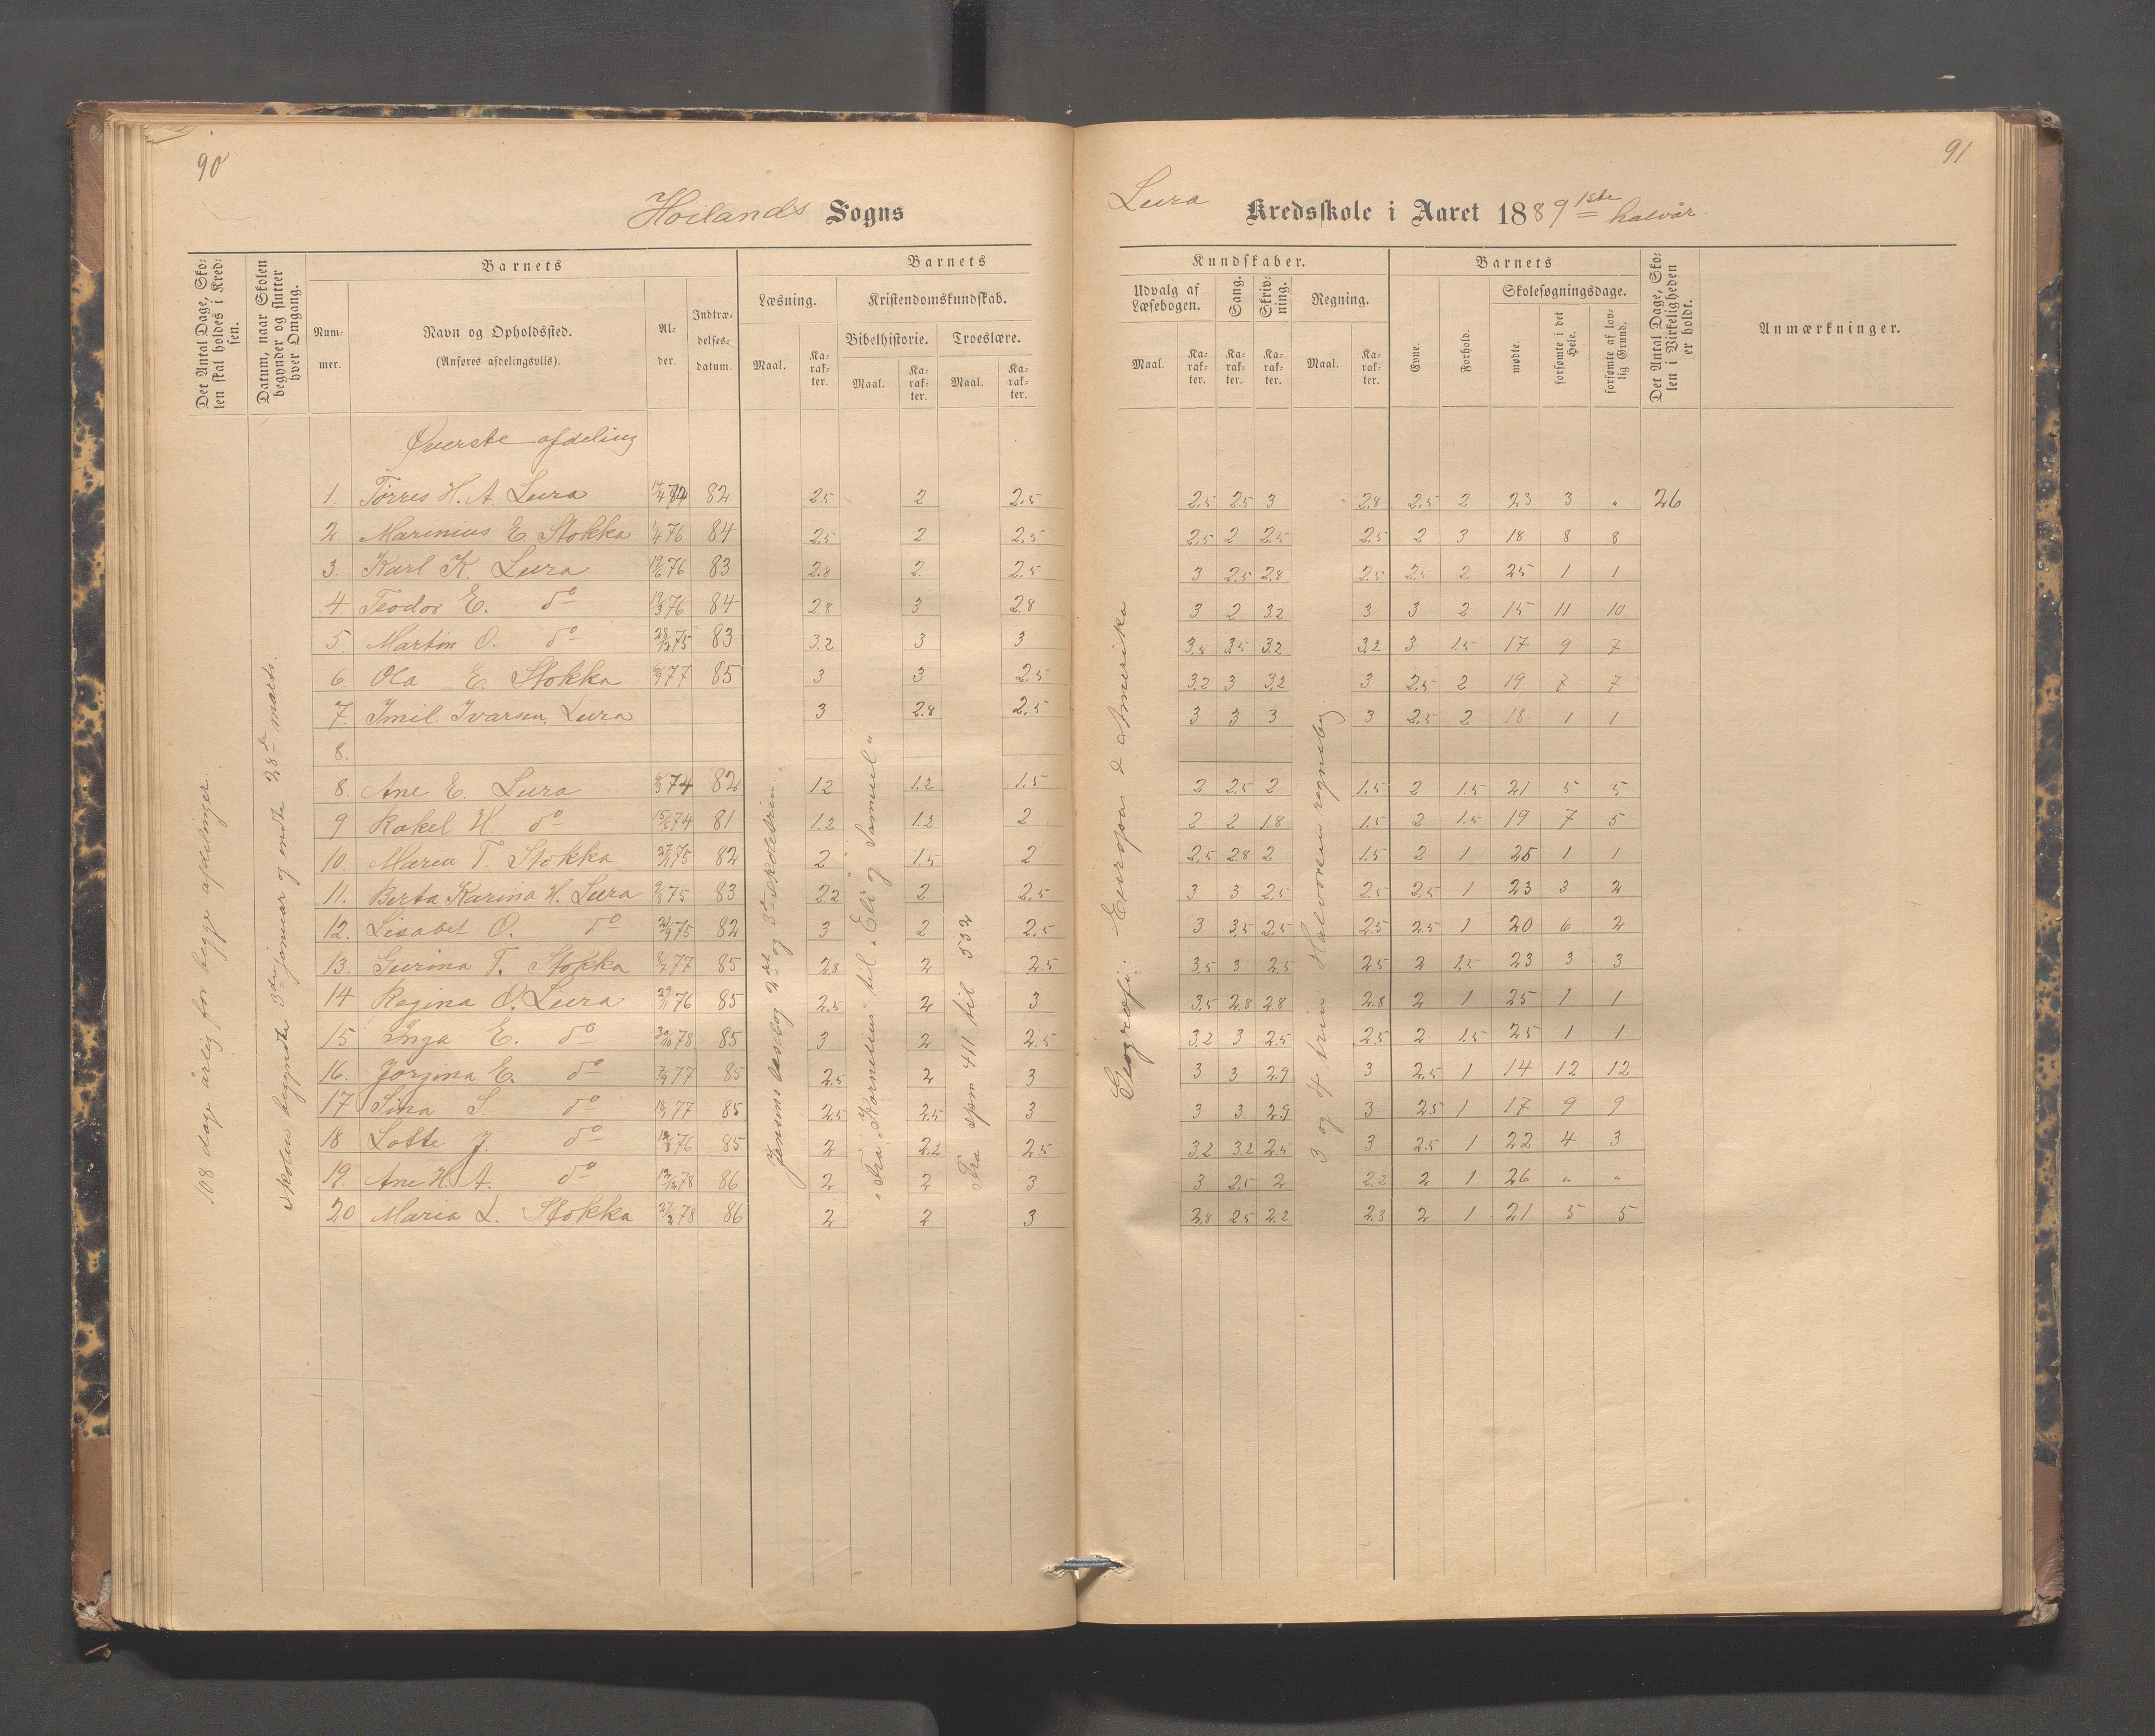 90
Hoilands Sogns
Det Antal Dage, Sko-
len skal holdes i Kred-
sen.
Datum, naar Skolen
begynder og slutter
hver Omgang.
Barnets
Num-
mer.
Navn og Opholdssted.
(Anføres afdelingsviis).
Al-
der.
Indtræ-
delses-
datum.
Barnets
Læsning.
Kristendomskundskab.
Bibelhistorie.
Troeslære.
Maal.
Ka-
rak-
ter.
Maal.
Ka-
rak-
ter.
Maal.
Ka-
rak-
ter.
108 dage årlig for begge afdelinger.
Skolen begyndte 3die januar og endte 28de marts.
Øverste afdeling
1. Tørres H. A. Lura 82 2.5 2 2.5
2 Marinius E. Stokka 76 84 2.5 2 2.5
3. Karl K. Lura 76 83 2.8 2 2.5
4 Teodor E. do 19/3 76 84 2.8 3 2.8
5. Martin O. do 28/12 75 83 3.2 3 3
6. Ola E. Stokka 77 85 3 3 2.5
7. Imil Ivarsen Lura 3 2.8 2.5
8.
8. Ane E. Lura 74 82 1.2 1.2 1.5
9 Rakel H. do 74 81 1.2 1.2 2
10. Maren T. Stokka 75 82 2 1.5 2
11. Berta Karina H. Lura 75 83 2.2 2 2.5
12. Lisabet O. do 75 82 3 2 2.5
13. Gurina T. Stokka 77 85 2.8 2 2.5
14 Regina O. Lura 76 85 2.5 2 3
15 Inga E. do 30/10 78 85 3 2 2.5
16. Jorgina E. do 77 85 2.5 2 3
17 Sina S. do 77 85 2.5 2.5 3
18 Lotte J. do 76 85 2 2.2 2.5
19. Ane H. A. do 12/12 78 86 2 2 3
20 Maria L. Stokka 78 86 2 2 3
Jensens læsebog 2det og 3die skoletrin.
"Fra "Kornelius" til "Eli og Samuel"
Fra spm 411 til 532
91
Lura Kredsskole i Aaret 1889 1ste halvår.
Kundskaber.
Udvalg af
Læsebogen.
Sang.
Skriv-
ning.
Regning.
Maal.
Ka-
rak-
ter.
Ka-
rak-
ter.
Ka-
rak-
ter.
Maal.
Ka-
rak-
ter.
Barnets
Evne.
Forhold.
Skolesøgningsdage.
mødte.
forsømte i det
Hele.
forsømte af lov-
lig Grund.
Det Antal Dage, Sko-
len i Virkeligheden
er holdt.
Anmærkninger.
Geografi: Europa & Amerika
3 og 4 trin Halvorsen regnebog.
2.5 2.5 3 2.8 2.5 2 23 3 " 26
2.5 2 2.5 2.5 2 3 18 8 8
3 2.5 2.8 2.5 2.5 2 25 1 1
3 2 3.2 3 3 2 15 11 10
3.5 3.5 3.2 3.2 3 1.5 17 9 7
3.2 3 3.2 3 2.5 2 19 7 7
3 3 3 3 2.5 2 18 1 1
2 2.5 2 1.5 2 1.5 21 5 5
2 2 1.8 1.5 2 1.5 19 7 5
2.5 2.8 2 1.5 2 1 25 1 1
3 3 2.5 2.5 2.5 1 23 3 2
3 3.5 2.5 2.5 2.5 1 20 6 2
3.5 3 2.5 2.5 2 1.5 23 3 3
3.5 2.8 2.8 2.8 2 1 25 1 1
3.2 3 2.5 2.5 2 1.5 25 1 1
3 3 2.9 3 2.5 1 14 12 12
3 3 2.9 3 2.5 1 17 9 9
3.2 3.2 2.5 3 2.5 1 22 4 3
3 2.5 2 2.2 2 1 26 " "
2.8 2.5 2.2 2.3 2 1 21 5 5